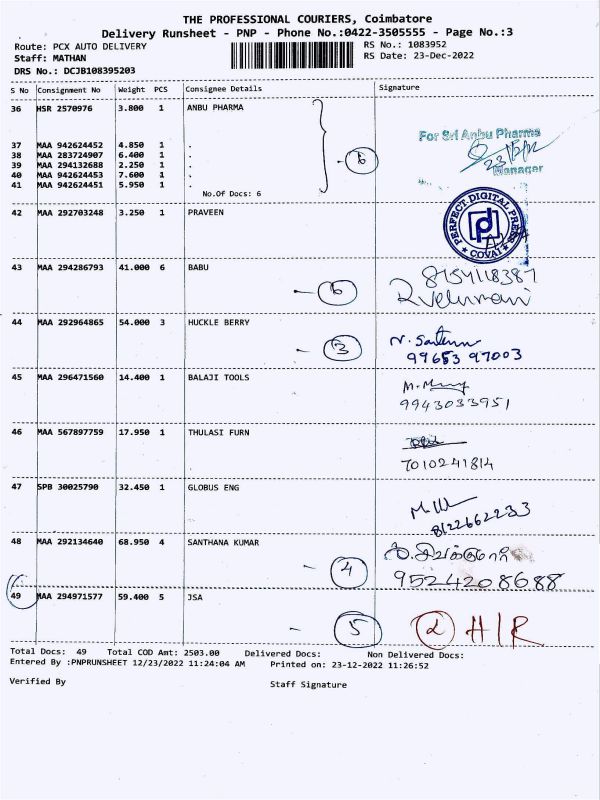 THE PROFESSIONAL COURIERS, Coimbatore
Delivery Runsheet - PNP - Phone No.:0422-3505555 - Page No.:3
Route: PCX AUTO DELIVERY RS No.: 1083952
Staff: MATHAN RS Date: 23-Dec-2022
DRS No.: DCJB108395203
S No Consignment No Weight PCS Consignee Details Signature
36 HSR 2570976 3.800 1 ANBU PHARMA
For Sri Anbu Pharma
37 MAA 942624452 4.850 1 .
38 MAA 283724907 6.400 1 .
39 MAA 294132688 2.250 1 . 6
40 MAA 942624453 7.600 1 . Manager
41 MAA 942624451 5.950 1 .
No.Of Docs: 6
42 MAA 292703248 3.250 1 PRAVEEN
PERFECT DIGITAL PRESS
COVAI
43 MAA 294286793 41.000 6 BABU
- 6
R Velumani
44 MAA 292964865 54.000 3 HUCKLE BERRY
- 3 99653 97003
45 MAA 296471560 14.400 1 BALAJI TOOLS
9943033951
46 MAA 567897759 17.950 1 THULASI FURN
7010241814
47 SPB 30025790 32.450 1 GLOBUS ENG
8122662233
48 MAA 292134640 68.950 4 SANTHANA KUMAR
- 4 9524208688
49 MAA 294971577 59.400 5 JSA
- 5 2 H/R
Total Docs: 49 Total COD Amt: 2503.00 Delivered Docs: Non Delivered Docs:
Entered By :PNPRUNSHEET 12/23/2022 11:24:04 AM Printed on: 23-12-2022 11:26:52
Verified By Staff Signature